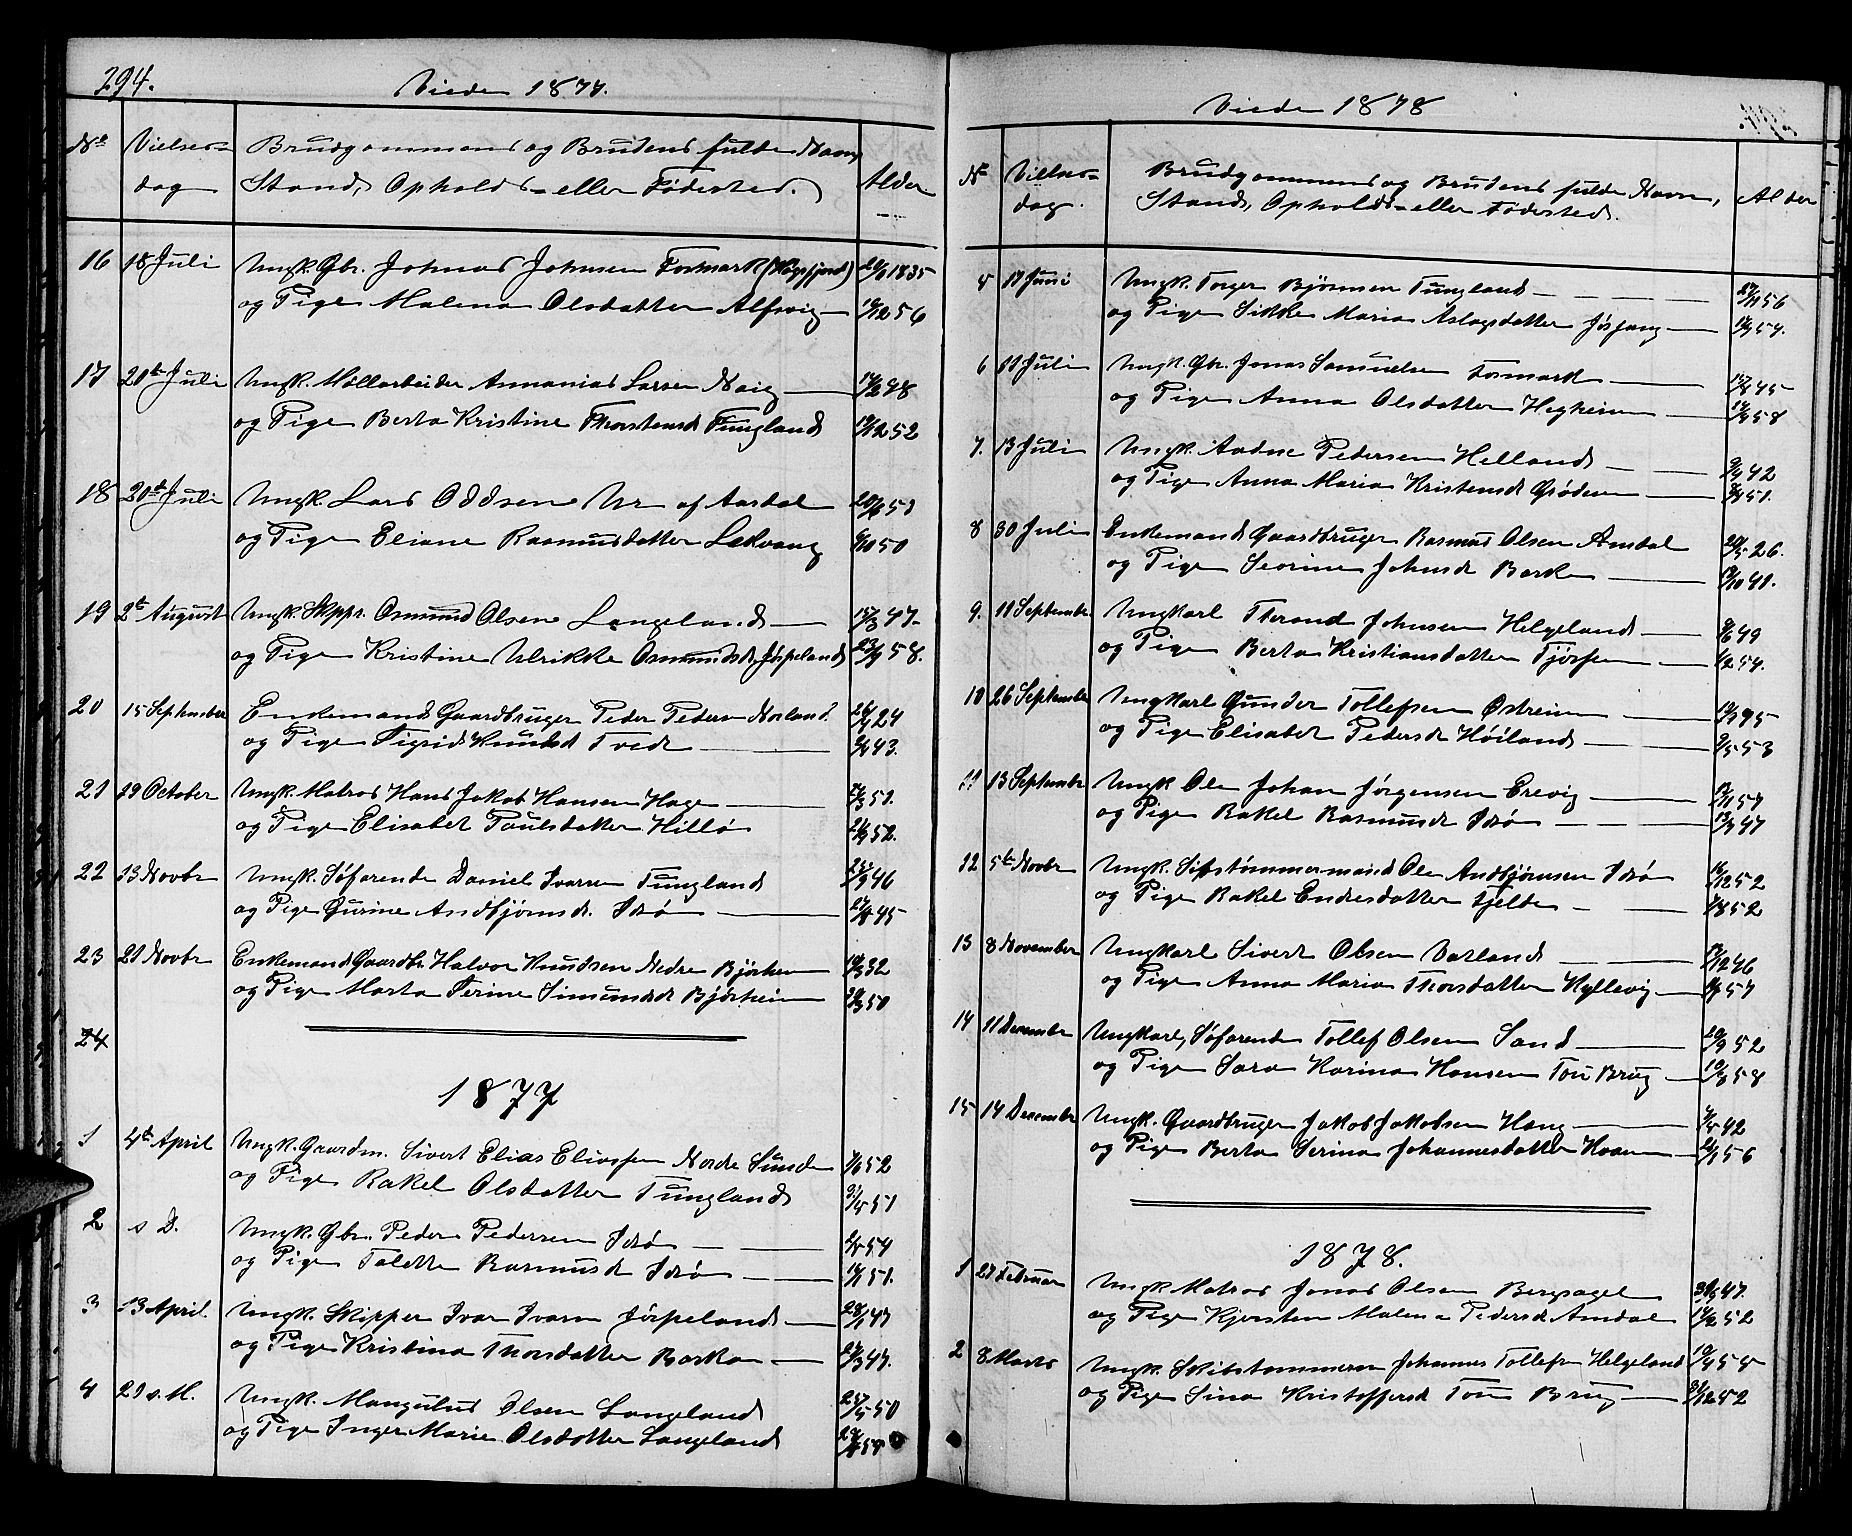 294.
Viede 1877.
No Vielses- Brudgommens og Brudens fulde Navn
dag Stand, Opholds- eller Fødested. Alder
16 18 Juli Ungk. Gbr. Johnas Johnsen Fosmark (Høgsfjord) 1835
og Pige Malena Olsdatter Alfsvig 56
17 20de Juli Ungk. Møllarbeider Annanias Larsen Naig 48
og Pige Berta Kristine Thorstensd Tungland 52
18 20de Juli Ungk Lars Oddsen Ur af Aardal 51
og Pige Eliane Rasmusdatter Lekvang 50
19 2de August Ungk. Skppr. Osmund Olsen Langeland 47.
og Pige Kristine Ulrikke Osmundsd Jøspeland 58.
20 15 September Enkemand Gaardbruger Peder Peders Norland 24
og Pige Sigrid Knudsd Tveda 43.
21 19 October Ungk. Matros Hans Jakob Hansen Hage 51.
og Pige Elisabet Paulsdatter Hillø 52.
22 13 Novbr Ungk. Søfarende Daniel Ivarsen Tungland 46
og Pige Gurine Andbjørnsd. Idsø 45
23 21 Novbr Enkemand Gaardbr Halvor Knudsen Nedre Bjørheim 32
og Pige Marta Serine Simundsd Bjørheim 50
24
1877
1 4de April Ungk. Gaardm. Sivert Elias Eliassen Nordre Sunde 52
og Pige Rakel Olsdatter Tungland 51
2 s D. Ungk. Gbr. Peder Pedersen Idsø 54
og Pige Talette Rasmusd Idsø 51.
3 13 April. Ungk. Skipper Ivar Ivarsen Jørpeland 47
og Pige Kristina Thorsdatter Barka 47.
4 21 s. M. Ungk. Mangulus Olsen Langeland 50
og Pige Inger Marie Olsdatter Langeland
Viede 1878
No Vielses- Brudgommens og Brudens fulde Navn,
dag. Stand, Opholds- eller Fødested. Alder
5 17 Juni Ungk. Torger Bjørnsen Tungland 56
og Pige Sikke Maria Aslagsdatter Jøsang 54.
6 11 Juli Ungk. Gbr. Jonas Samuelsen Fosmark 45
og Pige Anna Olsdatter Hegheim 58
7. 13 Juli Ungk. Aadne Pedersen Helland 42
og Pige Anna Maria Kristensd Grødem 51.
8 30 Juli Enkemand Gaardbruger Rasmus Olsen Amdal 26.
og Pige Severine Johnsd Barka 41.
9. 11 September Ungkarl Thorand Johnsen Helgeland 49
og Pige Berta Kristiansdatter Tjøssem 54.
10 26 September Ungkarl Gunder Tollefsen Østreim
og Pige Elisabet Pedersd Høiland 53
11 13 September Ungk Ole Johan Jørgensen Erevig 57
og Pige Rakel Rasmusd Idsø 47
12 5te Novbr Ungk. Skibstømmermand Ole Andbjørnsen Idsø 52
og Pige Rakel Endresdatter Fjelde 52
13 8 November Ungkarl Sivert Olsen Vatland 46
og Pige Anna Maria Thorsdatter Hyllevig 57
14 11 December Ungkarl, Søfarende Tollef Olsen Sand 52
og Pige Sara Karina Hansen Tou Brug 58
15 14 December Ungk. Gaardbruger Jakob Jakobsen Haug 42
og Pige Berta Serina Johannesdatter Hoam 56
1878.
1 27 Februar Ungk. Matros Jonas Olsen Bergsagel 47.
og Pige Kjersten Malene Pedersd Amdal 52
2 8 Marts Ungk. Skibstømmerm Johannes Tollefs Helgeland 54
og Pige Sina Kristoffersd Tou Brug 52